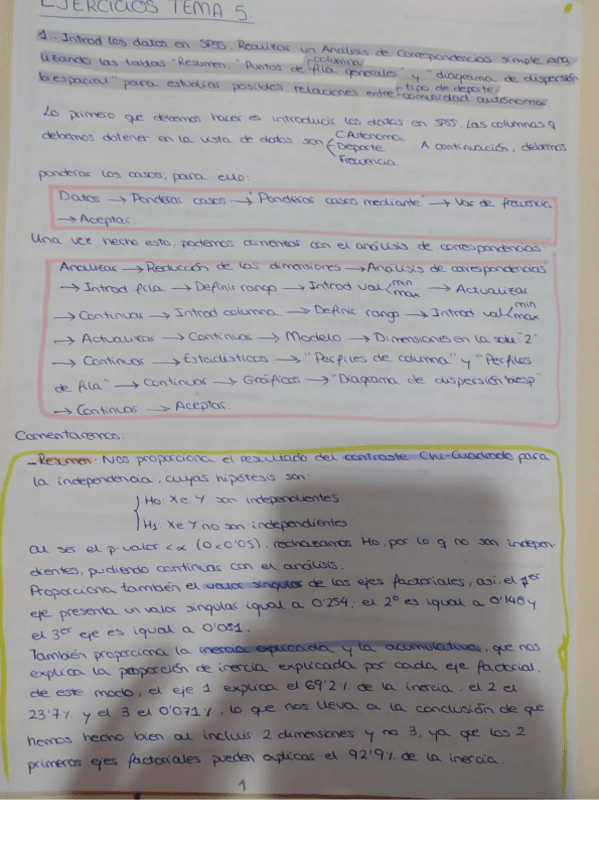 EJERCICIOS TEMA 5
1.- Introd los datos en SPSS. Realizar un Análisis de Correspondencias simple ana
lizando las tablas "Resumen," "Puntos de columna/fila generales" y "diagrama de dispersión
biespacial" para estudiar posibles relaciones entre tipo de deporte/comunidad autónoma
Lo primero que debemos hacer es introducir los datos en SPSS. Las columnas q
debemos obtener en la vista de datos son { C.Autónoma
Deporte
Frecuencia
A continuación, debemos
ponderar los casos, para ello:
Datos → Ponderar casos → "Ponderar casos mediante" → Var de frecuencia
→ Aceptar.
Una vez hecho esto, podemos comenzar con el análisis de correspondencias:
Analizar → Reducción de las dimensiones → Análisis de correspondencias
→ Introd fila → Definir rango → Introd val < min max → Actualizar
→ Continuar → Introd columna → Definir rango → Introd val < min max
→ Actualizar → Continuar → Modelo → Dimensiones en la solu: "2"
→ Continuar → Estadísticos → "Perfiles de columna" y "Perfiles
de fila" → Continuar → Gráficos → "Diagrama de dispersión biesp"
→ Continuar → Aceptar.
Comentaremos:
- Resumen: Nos proporciona el resultado del contraste Chi-Cuadrado para
la independencia, cuyas hipótesis son:
{ H0: X e Y son independientes
H1: X e Y no son independientes
al ser el p-valor < α (0<0'05), rechazamos H0, por lo q no son indepen-
dientes, pudiendo continuar con el análisis.
Proporciona también el valor singular de los ejes factoriales, así, el 1er
eje presenta un valor singular igual a 0'254, el 2º es igual a 0'148 y
el 3er eje es igual a 0'081.
También proporciona la inercia explicada y la acumulativa, que nos
explica la proporción de inercia explicada por cada eje factorial,
de este modo, el eje 1 explica el 69'2% de la inercia, el 2 el
23'7% y el 3 el 0'071%, lo que nos lleva a la conclusión de que
hemos hecho bien al incluir 2 dimensiones y no 3, ya que los 2
primeros ejes factoriales pueden explicar el 92'9% de la inercia.
1